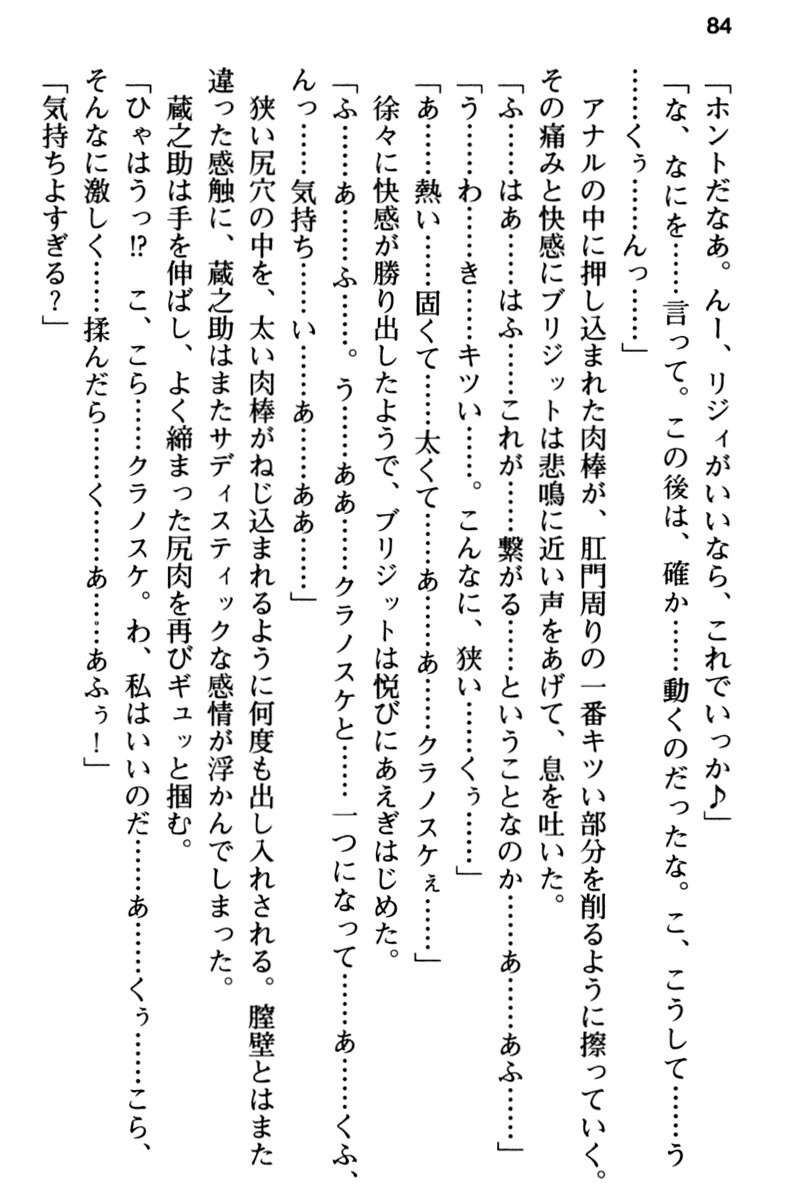 84
「ホントだなあ。んー、リジィがいいなら、これでいっか♪」
「な、なにを……言って。この後は、確か……動くのだったな。こ、こうして……う
……くぅ……んっ……」
　アナルの中に押し込まれた肉棒が、肛門周りの一番キツい部分を削るように擦っていく。
その痛みと快感にブリジットは悲鳴に近い声をあげて、息を吐いた。
「ふ……はあ……はふ……これが……繋がる……ということなのか……あ……あふ……」
「う……わ……き……キツい……。こんなに、狭い……くぅ……」
「あ……熱い……固くて……太くて……あ……あ……クラノスケぇ……」
　徐々に快感が勝り出したようで、ブリジットは悦びにあえぎはじめた。
「ふ……あ……ふ……。う……ああ……クラノスケと……一つになって……あ……くふ、
んっ……気持ち……い……あ……ああ……」
　狭い尻穴の中を、太い肉棒がねじ込まれるように何度も出し入れされる。膣壁とはまた
違った感触に、蔵之助はまたサディスティックな感情が浮かんでしまった。
　蔵之助は手を伸ばし、よく締まった尻肉を再びギュッと掴む。
「ひゃはうっ!?　こ、こら……クラノスケ。わ、私はいいのだ……あ……くぅ……こら、
そんなに激しく……揉んだら……く……あ……あふぅ！」
「気持ちよすぎる？」